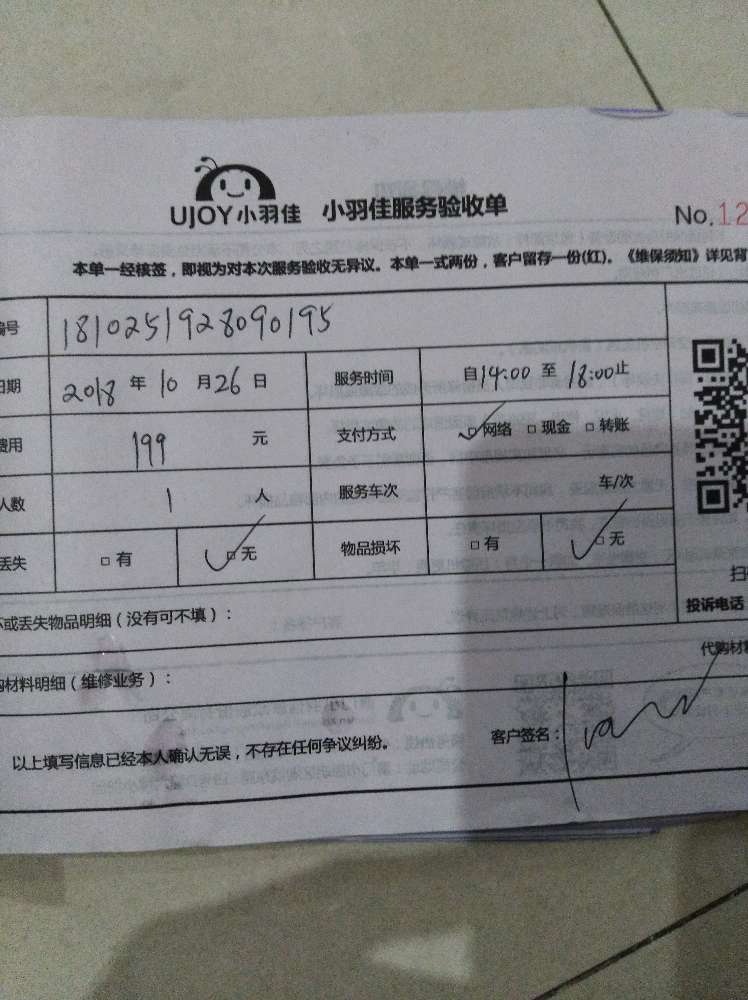 UJOY小羽佳 小羽佳服务验收单
No.12
本单一经核签，即视为对本次服务验收无异议。本单一式两份，客户留存一份(红)。《维保须知》详见背
编号 1810251928090195
日期 2018 年 10 月 26 日 服务时间 自14:00 至 18:00止
费用 199 元 支付方式 网络 现金 转账
人数 1 人 服务车次 车/次
丢失 有 无 物品损坏 有 无
扫
投诉电话
坏或丢失物品明细（没有可不填）：
代购材料
购材料明细（维修业务）：
以上填写信息已经本人确认无误，不存在任何争议纠纷。
客户签名：